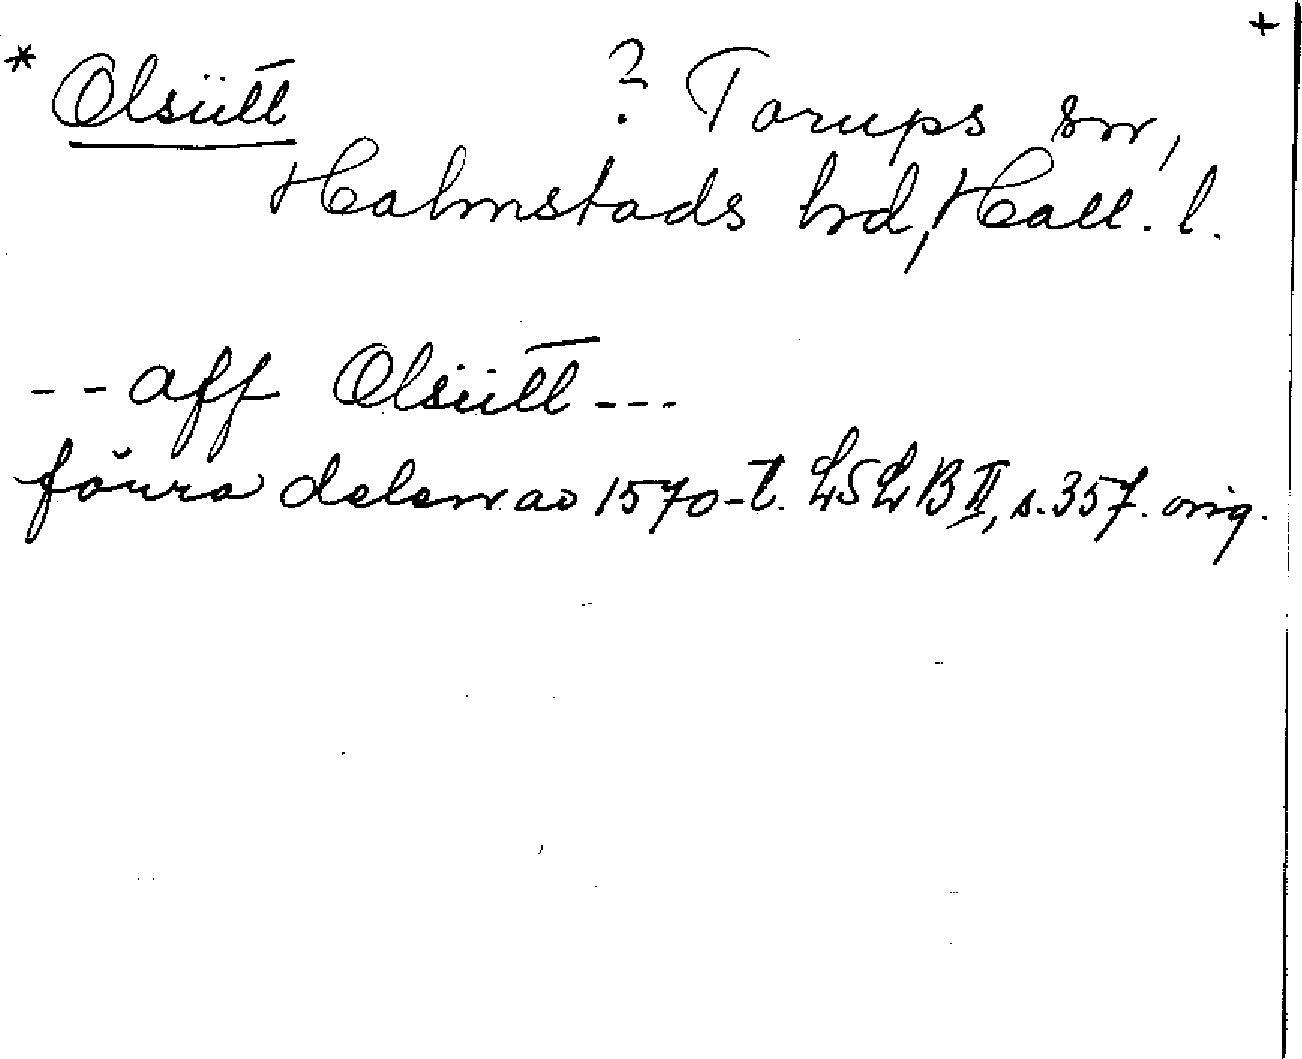 +
* Olsütt ? Torups sn,
Halmstads hrd, Hall. l.
-- aff Olsütt ---
förra delen av 1570-t. LSLB II, s. 357. orig.